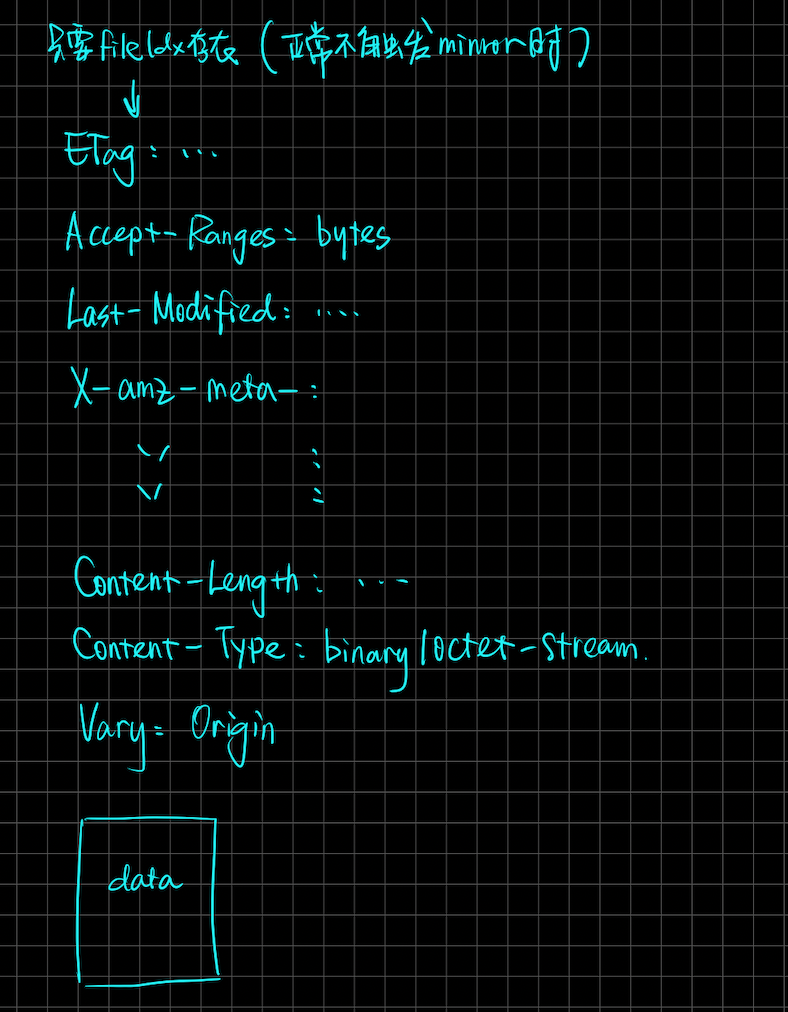 只要fileIdx存在（正常不触发mirror时）
ETag: ...
Accept-Ranges: bytes
Last-Modified: ....
X-amz-meta-:
Content-Length: ...
Content-Type: binary/octet-stream.
Vary: Origin
data